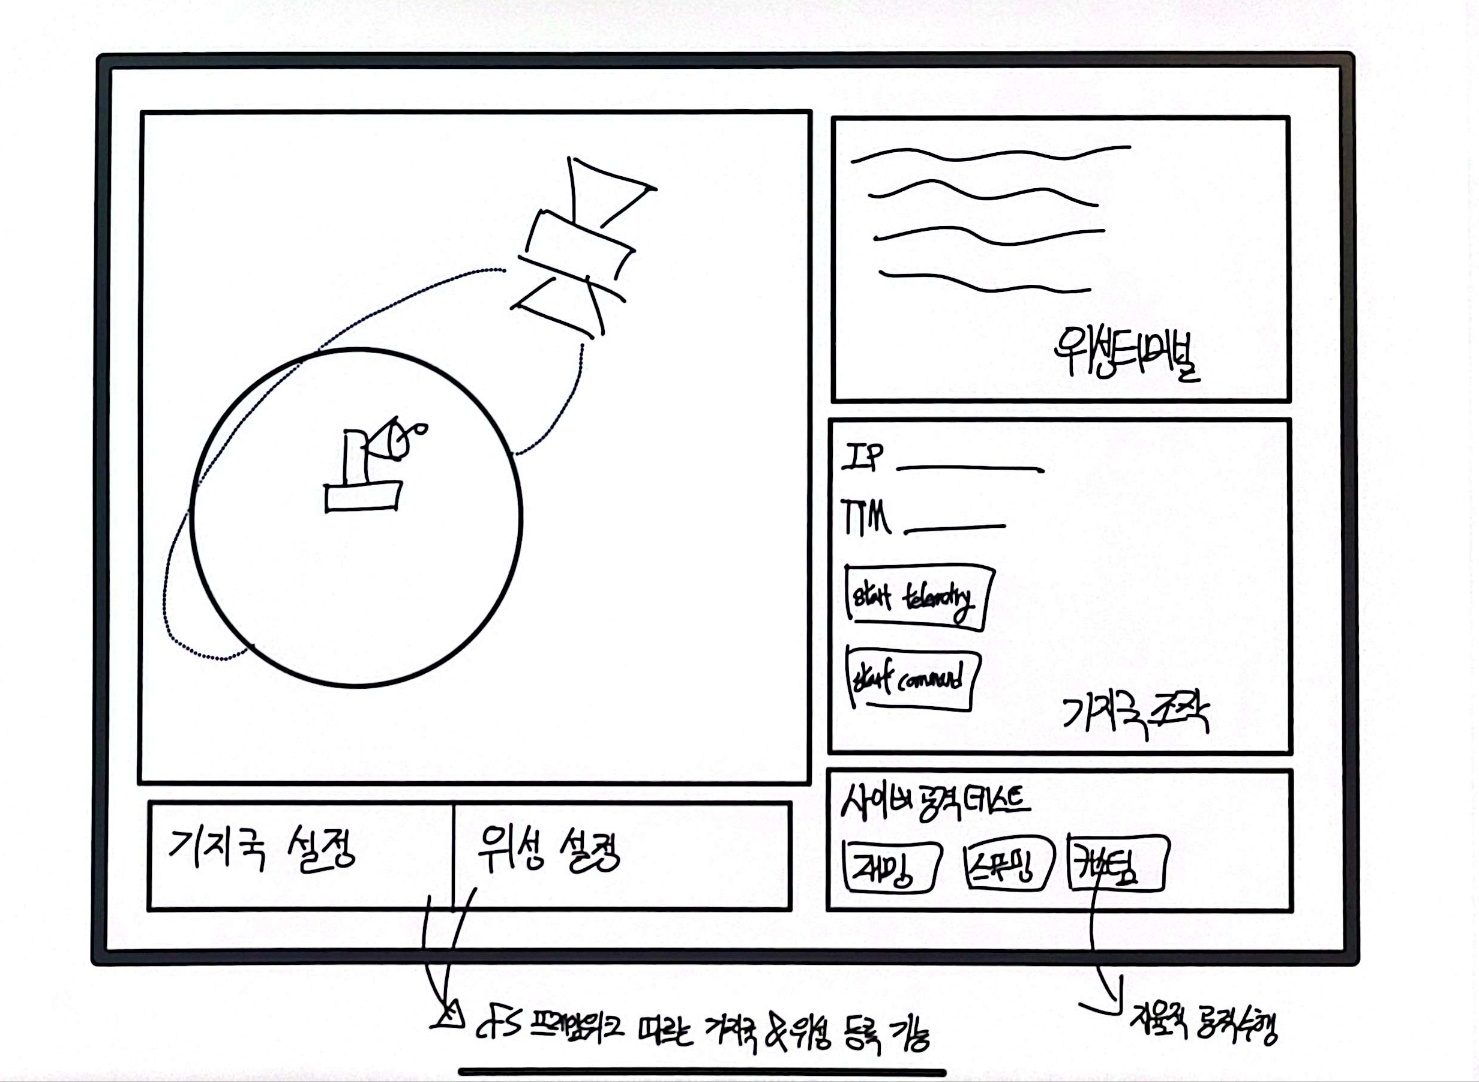 위성터미널
IP
TTM
start telemetry
start command
기지국 조작
기지국 설정
위성 설정
사이버 공격 테스트
재밍
스푸핑
커스텀
cFS 프레임워크 따르는 기지국 & 위성 등록 기능
자율적 공격수행